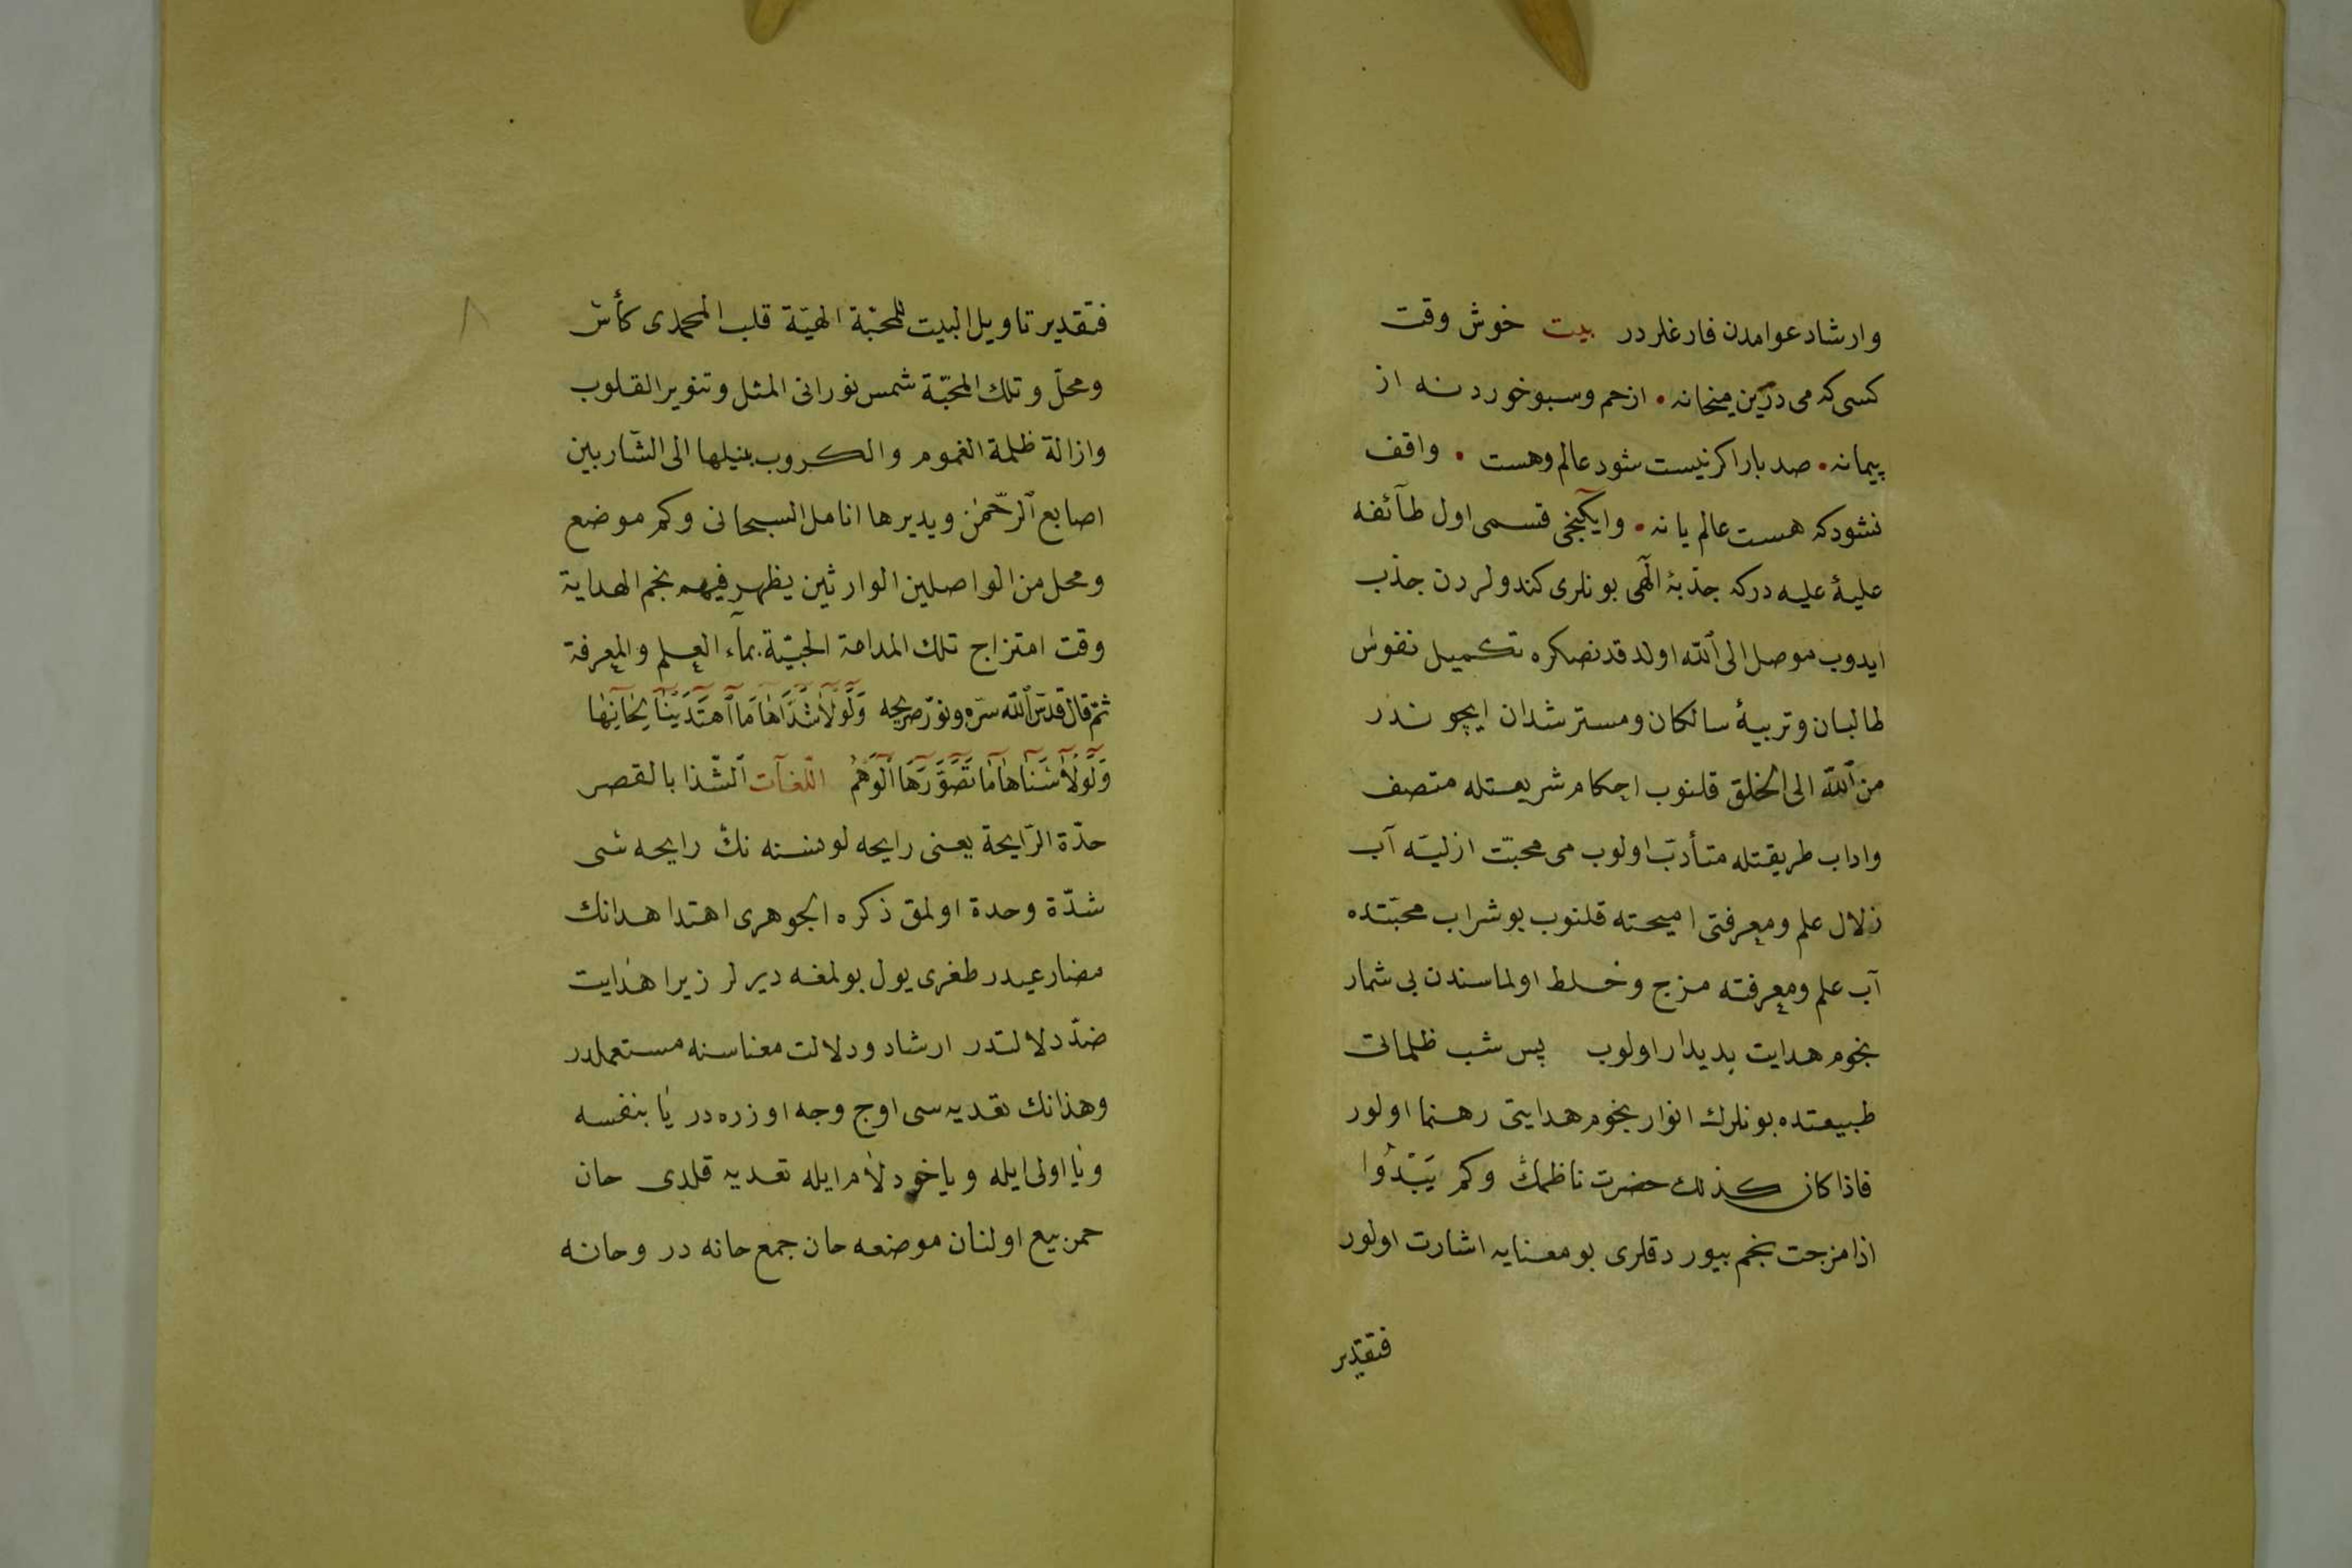 وارشاد عوامدن فارغلردر بيت خوش وقت
كسى كه مى درين ميخانه • ازخم وسبو خورد نه از
پيمانه • صد بار اكر نيست شود عالم وهست • واقف
نشود كه هست عالم يا نه • وايكنجى قسمى اول طآئفۀ
عليۀ عليه دركه جذبۀ الٓهى بونلرى كندولردن جذب
ايدوب موصل الى الله اولدقدنصكره تكميل نفوس
طالبان وتربيۀ سالكان ومسترشدان ايچوندر
من الله الى الخلق قلنوب احكام شريعتله متصف
واداب طريقتله متأدّب اولوب مى محبّت ازليّه آب
زلال علم ومعرفتى اميحته قلنوب بو شراب محبّتده
آب علم ومعرفته مزج وخلط اولماسندن بى شمار
نجوم هدايت بديدار اولوب پس شب ظلماتى
طبيعتده بونلرك انوار نجوم هدايتى رهنما اولور
فاذا كان كذلك حضرت ناظمك وكم يَبْدُوا
اذا مزجت نجم بيوردقلرى بو معنايه اشارت اولور
فتقدير
٨
فتقدير تاويل البيت للمحبّة الهيّة قلب المحمدى كأس
ومحلّ وتلك المحبّة شمس نورانى المثل وتنوير القلوب
وازالة ظلمة الغموم والكروب بنيلها الى الشّاربين
اصابع الرّحمٰن ويديرها انامل السبحانى وكم موضع
ومحل من الواصلين الوارثين يظهر فيهم نجم الهداية
وقت امتزاج تلك المدامة الحبيّة بمآء العلم والمعرفة
ثمّ قال قدّس الله سرّه ونوّر ضريحه وَلَوْلَا شَذَاهَا مَا اهْتَدَيْنَا لِحَانِهَا
وَلَوْلَا سَنَاهَا مَا تَصَوَّرَهَا الْوَهْمُ اللّغآت الشّذا بالقصر
حدّة الرّايحة يعنى رايحه لو نسنه نك رايحه سى
شدّة وحدة اولمق ذكره الجوهرى اهتدا هدانك
مضارعيدر طغرى يول بولمغه ديرلر زيرا هدايت
ضدّ دلالتدر ارشاد ودلالت معناسنه مستعملدر
وهذانك تعديه سى اوج وجه اوزره در يا بنفسه
ويا اولى ايله وياخود لام ايله تعديه قلدى حان
خمر بيع اولنان موضعه حان جمع حانه در وحانه